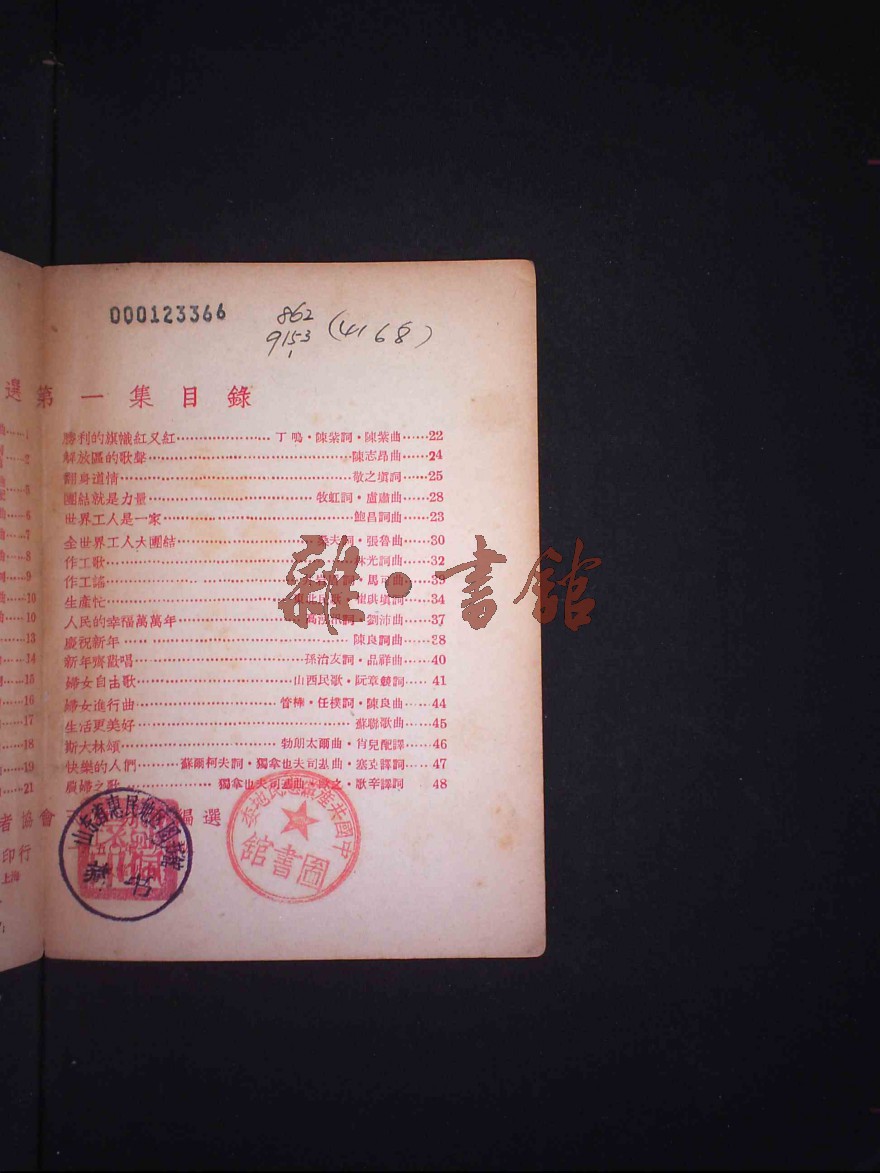 000123366
862
9153 (4168)
1
選第一集目錄
勝利的旗幟紅又紅……丁鳴·陳紫詞·陳紫曲……22
解放區的歌聲……陳志昂曲……24
翻身道情……敬之填詞……25
團結就是力量……牧虹詞·盧肅曲……28
世界工人是一家……鮑昌詞曲……23
全世界工人大團結……夫詞·張魯曲……30
作工歌……林光詞曲……32
作工謠……詞·馬可曲……39
生產忙……民歌·崔琪填詞……34
人民的幸福萬萬年……詞·劉沛曲……37
慶祝新年……陳良詞曲……38
新年齊歡唱……孫治友詞·品祥曲……40
婦女自由歌……山西民歌·阮章競詞……41
婦女進行曲……管樺·任樸詞·陳良曲……44
生活更美好……蘇聯歌曲……45
斯大林頌……勃朗太爾曲·肖兒配譯……46
快樂的人們……蘇爾柯夫詞·獨拿也夫司基曲·塞克譯詞……47
農婦之歌……獨拿也夫司基曲·之·歌辛譯詞……48
者協會 編選
印行
上海
山東省惠民地區圖書館
藏书
中國共產黨惠民地委
圖書館
雜·書館